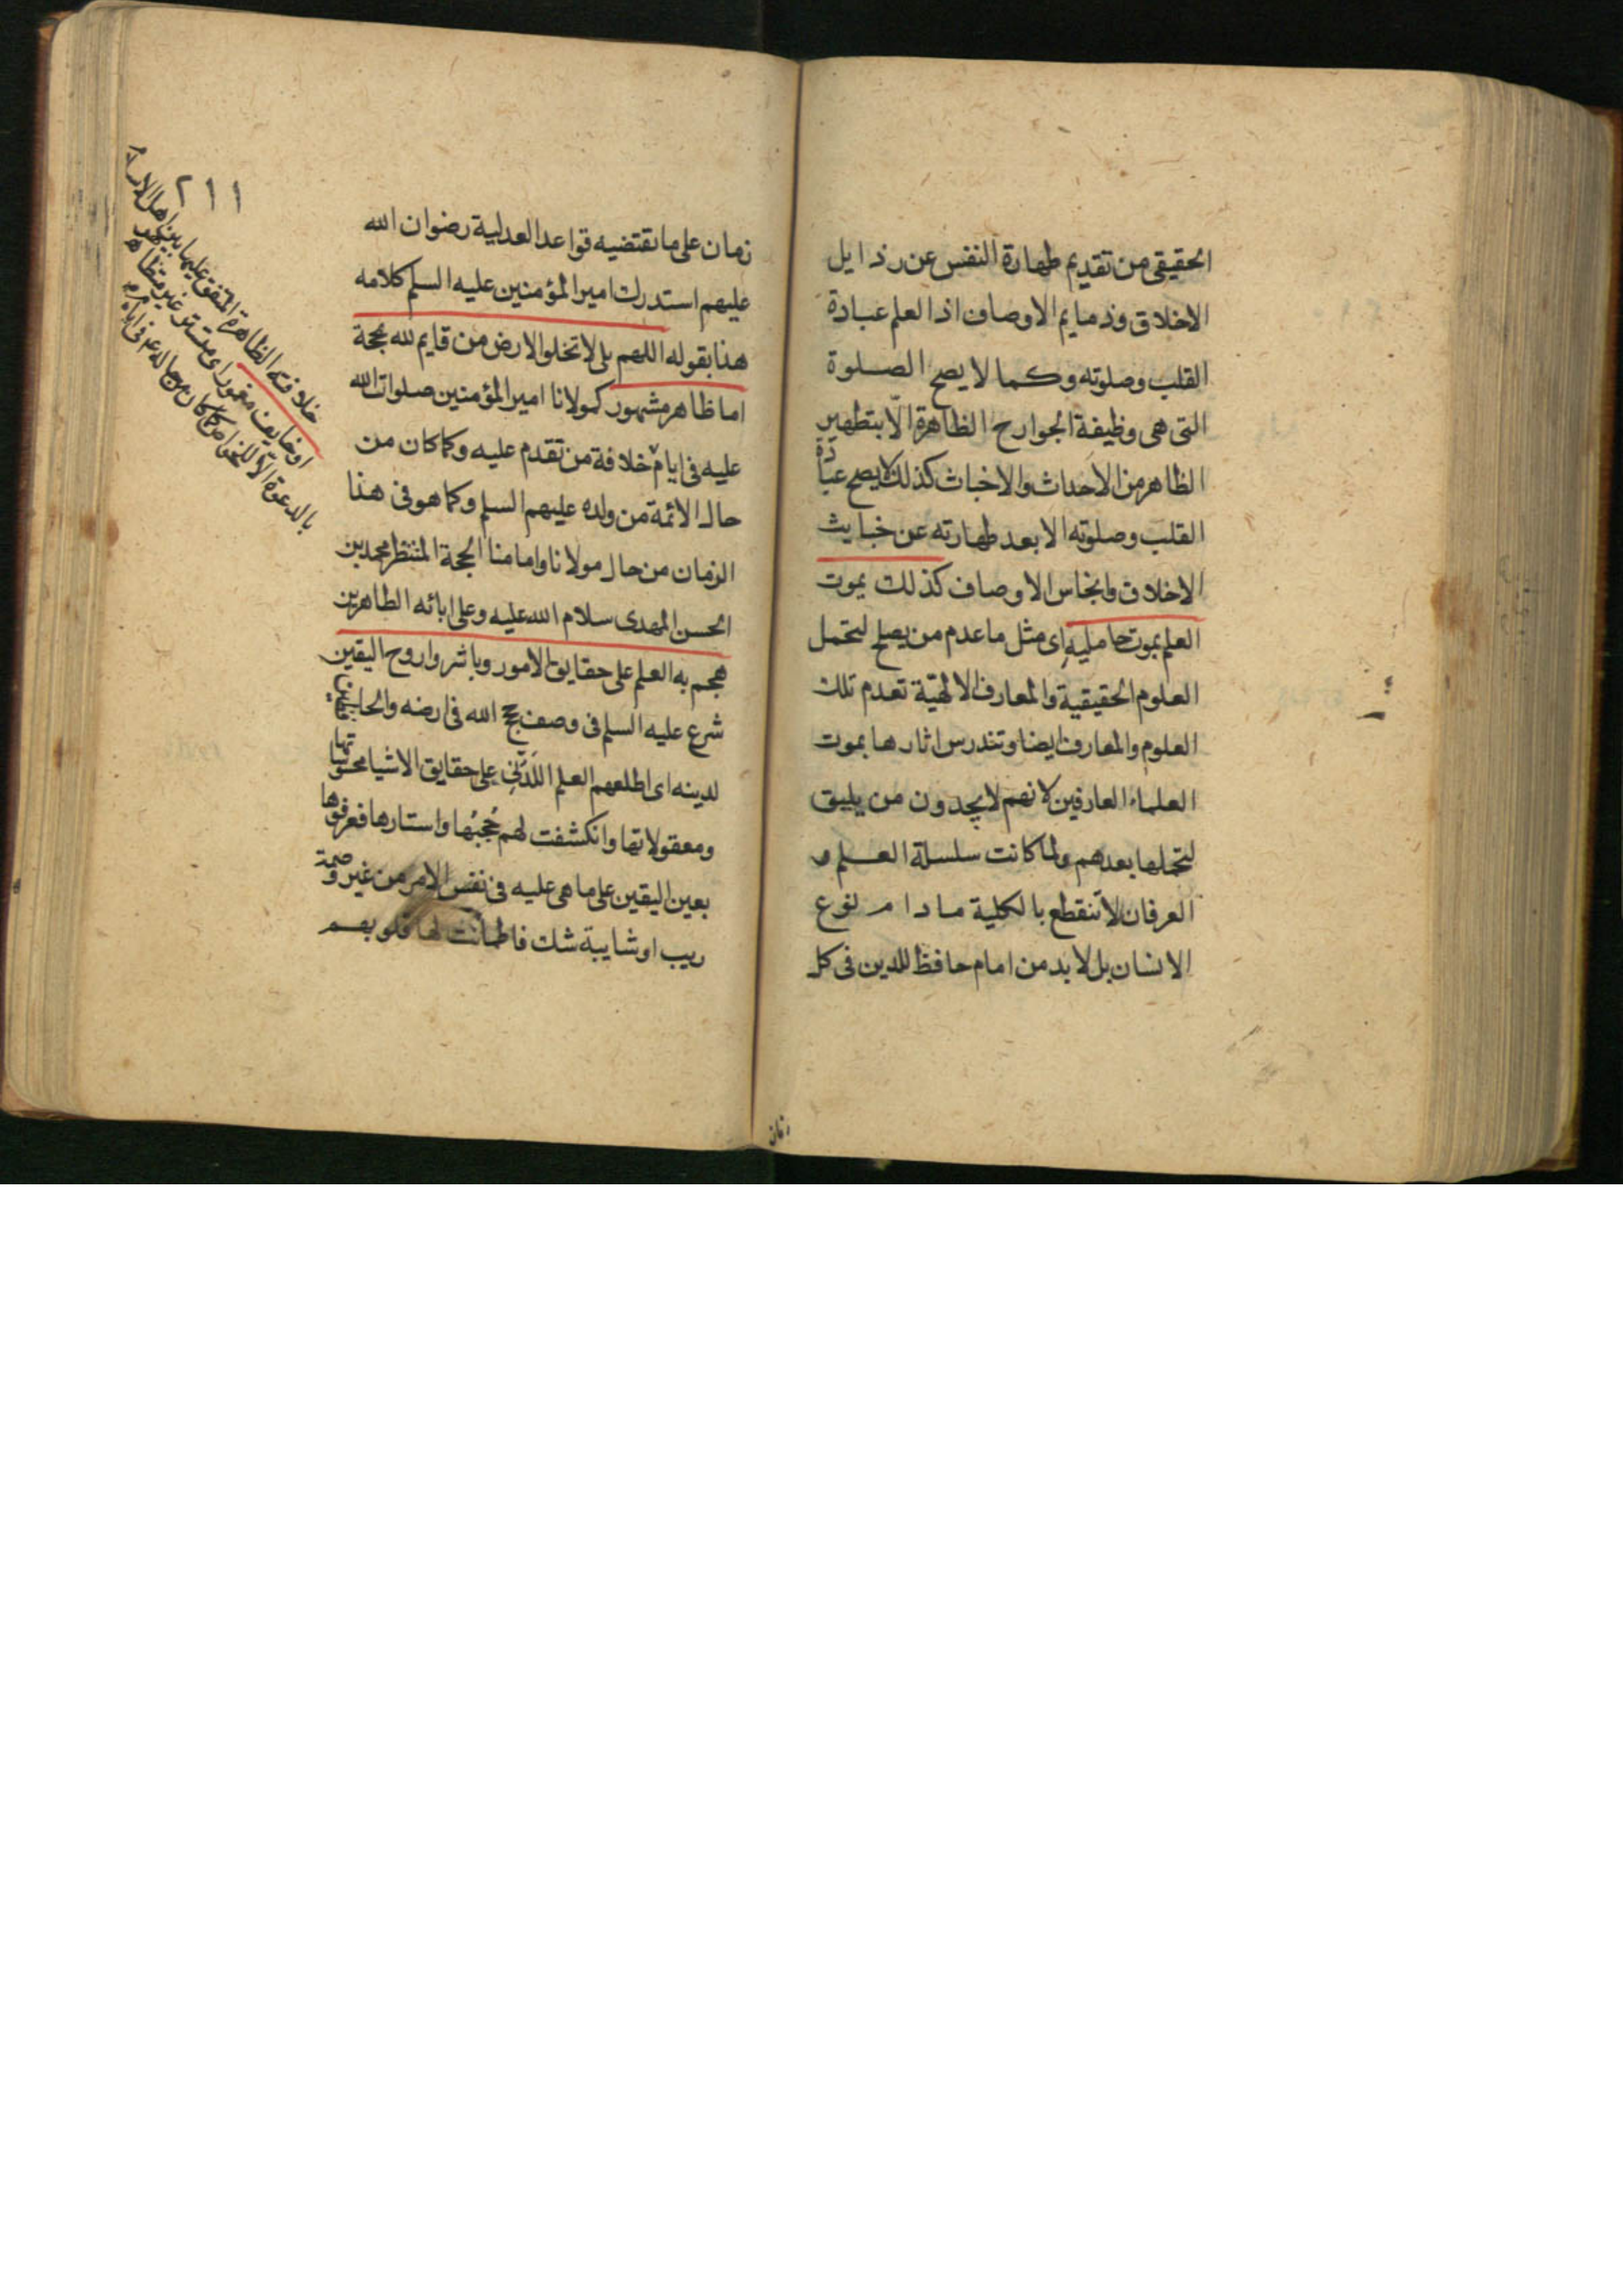 الحقيقى من تقديم طهارة النفس عن رذايل
الاخلاق وذمايم الاوصاف اذ العلم عبادة
القلب وصلوته وكما لا يصح الصلوة
التى هى وظيفة الجوارح الظاهرة الّا بتطهير
الظاهر من الاحداث والاخباث كذلك لا يصح عبادة
القلب وصلوته الا بعد طهارته عن خبايث
الاخلاق وانجاس الاوصاف كذلك يموت
العلم بموت حامليه اى مثل ما عدم من يصلح لتحمل
العلوم الحقيقية والمعارف الالهيّة تعدم تلك
العلوم والمعارف ايضا وتندرس اثارها بموت
العلماء العارفين لانهم لا يجدون من يليق
لتحملها بعدهم ولما كانت سلسلة العلم و
العرفان لا تنقطع بالكلية مادام نوع
الانسان بل لا بد من امام حافظ للدين فى كل
زمان
٢١١
زمان على ما تقتضيه قواعد العدلية رضوان الله
عليهم استدرك امير المؤمنين عليه السلم كلامه
هذا بقوله اللهم بلى لا تخلو الارض من قايم لله بحجة
اما ظاهر مشهور كمولانا امير المؤمنين صلوات الله
عليه فى ايام خلافة من تقدم عليه وكما كان من
حال الائمة من ولده عليهم السلم وكما هو فى هذا
الزمان من حال مولانا وامامنا الحجة المنتظر محمد بن
الحسن المهدى سلام الله عليه وعلى ابائه الطاهرين
هجم به العلم على حقايق الامور وباشروا روح اليقين
شرع عليه السلم فى وصف حجج الله فى ارضه والحافظين
لدينه اى اطلعهم العلم اللدنّى على حقايق الاشيا محسوساتها
ومعقولاتها وانكشفت لهم حُجُبُها واستارها فعرفوها
بعين اليقين على ما هى عليه فى نفس الامر من غير وصمة
ريب او شايبة شك فاطمانت لها قلوبهم
خلافته الظاهرة المتفق عليها بين اهل
او خايف مغمور اى مستتر غير متظاهر
بالدعوة الّا للخواص كما كان من حاله فى ايام